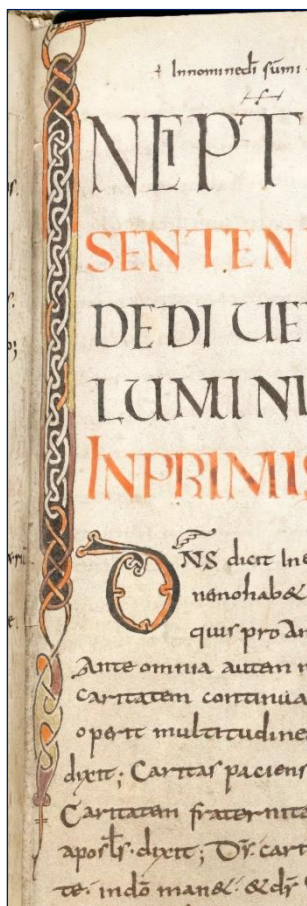 + Innominedi sumi
INCIPT
SENTEN
DEDIUE
LUMINU
INPRIMIS
DNS dicit Ine
nenohab&
quis pro an
Ante omnia autem
caritatem continua
operit multitudine
dixit; Caritas paciens
Caritatem fraternita
apostls dixit; Ds cari
te in do man& & ds